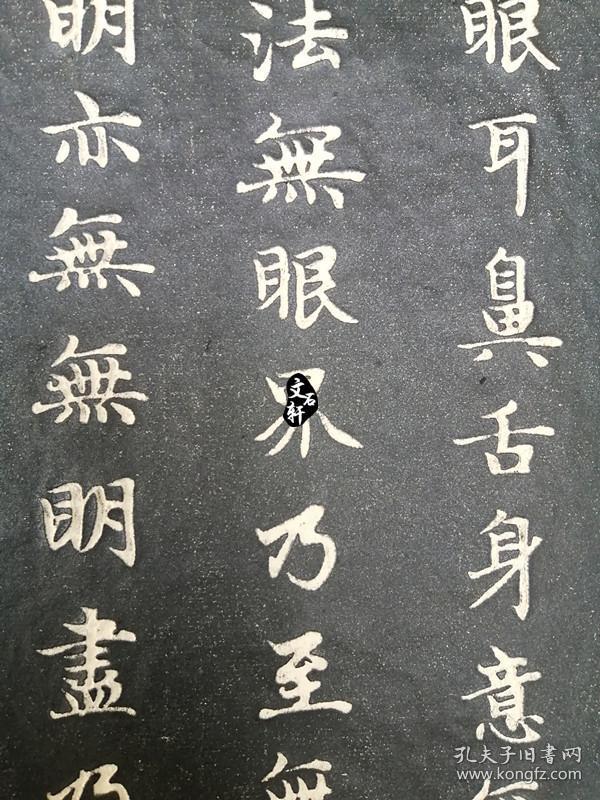 眼耳鼻舌身意
法無眼界乃至無
明亦無無明盡乃
文石轩
孔夫子旧書网
www.kongfz.com